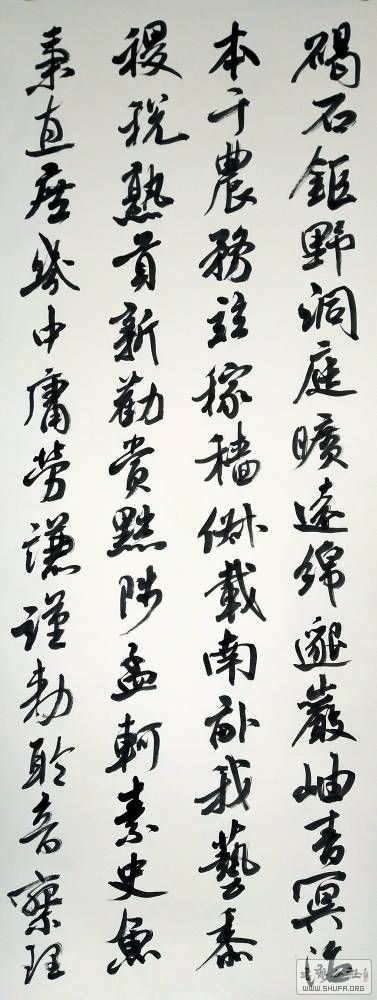 碣石鉅野洞庭曠遠綿邈巖岫杳冥治
本于農務茲稼穡俶載南畝我藝黍
稷稅熟貢新勸賞黜陟孟軻素史魚
秉直庶幾中庸勞謙謹勅聆音察理
WWW.SHUFA.ORG